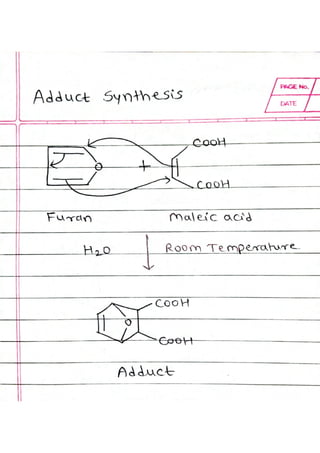 PAGE No.
DATE
Adduct Synthesis
COOH
O
+
COOH
Furan
Maleic acid
H2O
Room Temperature
COOH
O
COOH
Adduct